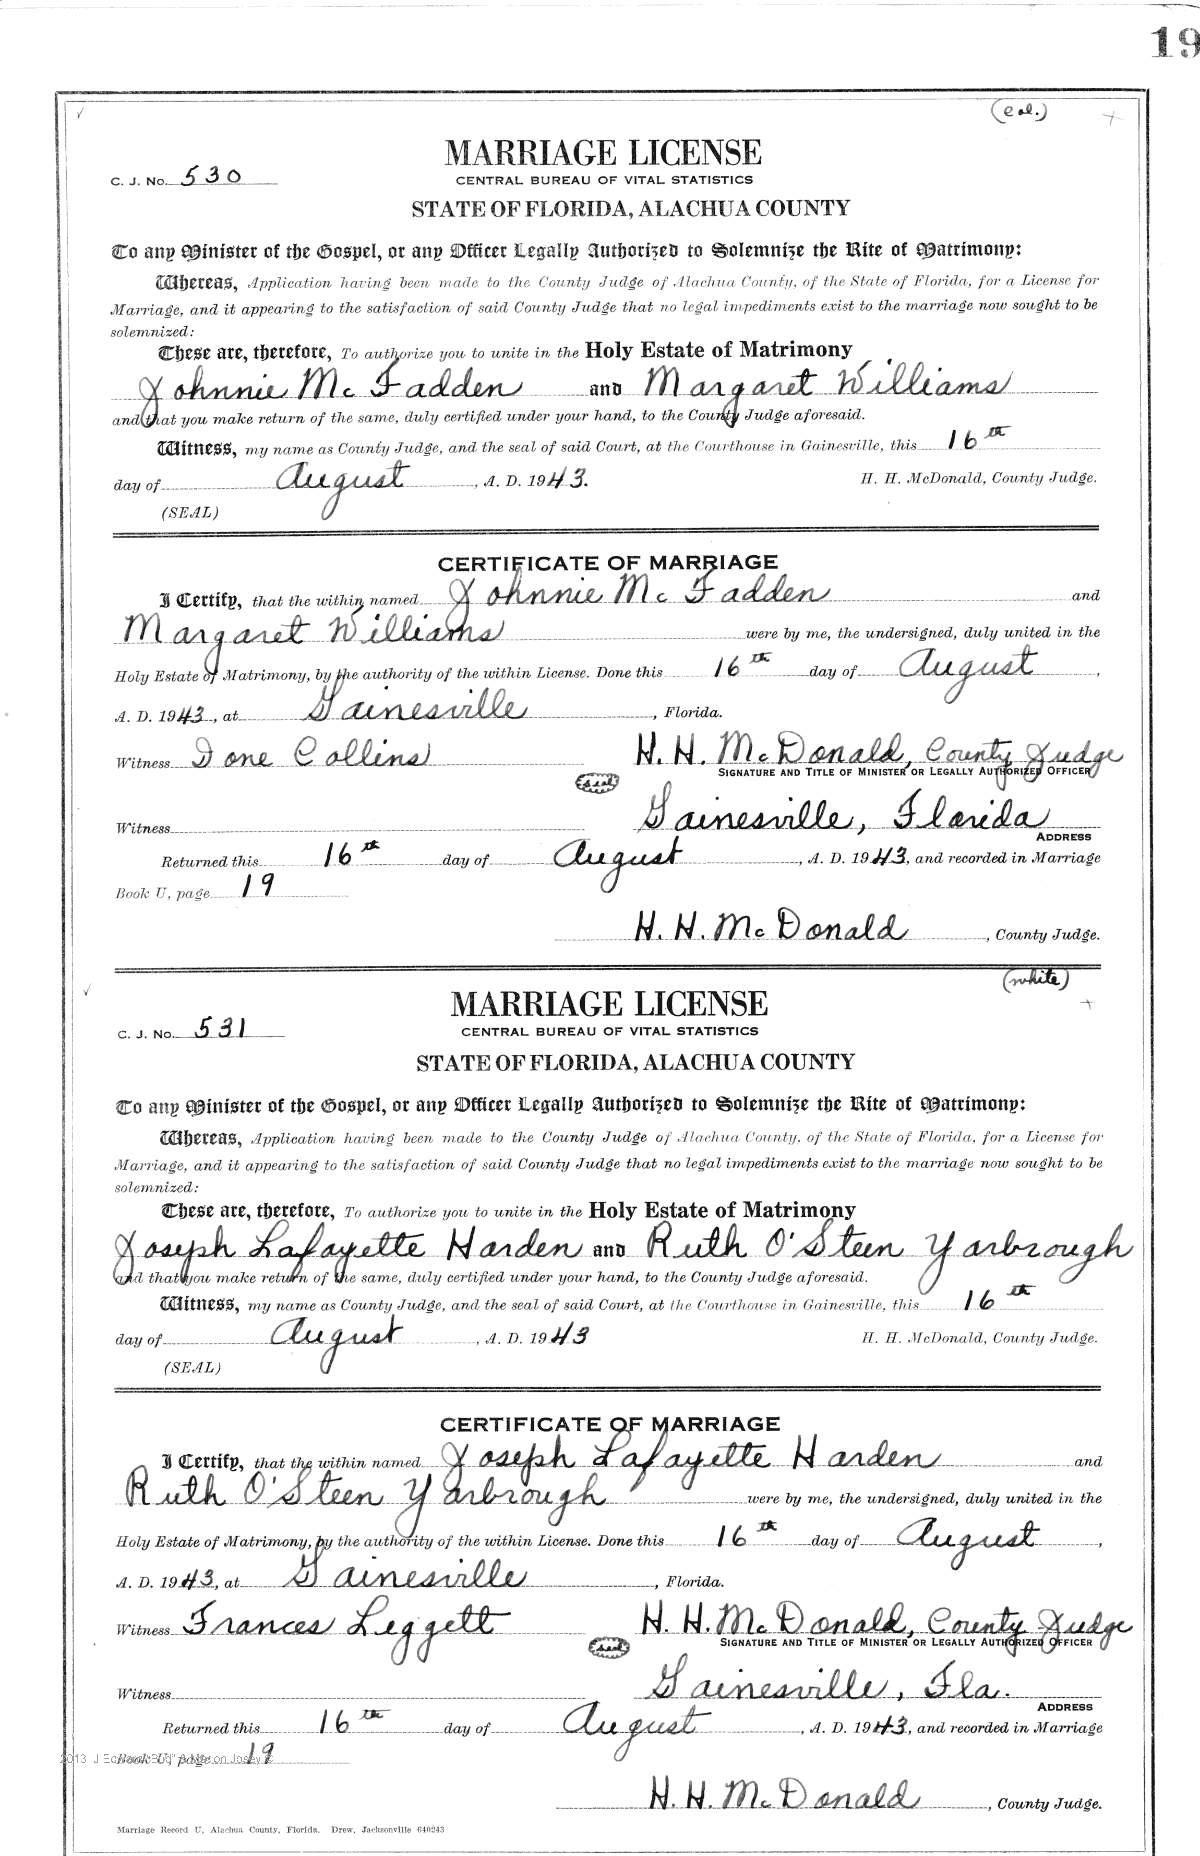 19
(col.)
MARRIAGE LICENSE
C. J. No. 530
CENTRAL BUREAU OF VITAL STATISTICS
STATE OF FLORIDA, ALACHUA COUNTY
To any Minister of the Gospel, or any Officer Legally Authorized to Solemnize the Rite of Matrimony:
Whereas, Application having been made to the County Judge of Alachua County, of the State of Florida, for a License for
Marriage, and it appearing to the satisfaction of said County Judge that no legal impediments exist to the marriage now sought to be
solemnized:
These are, therefore, To authorize you to unite in the Holy Estate of Matrimony
Johnnie McFadden and Margaret Williams
and that you make return of the same, duly certified under your hand, to the County Judge aforesaid.
Witness, my name as County Judge, and the seal of said Court, at the Courthouse in Gainesville, this 16th
day of August, A. D. 1943. H. H. McDonald, County Judge.
(SEAL)
CERTIFICATE OF MARRIAGE
I Certify, that the within named Johnnie McFadden and
Margaret Williams were by me, the undersigned, duly united in the
Holy Estate of Matrimony, by the authority of the within License. Done this 16th day of August,
A. D. 1943, at Gainesville, Florida.
Witness Ione Collins H. H. McDonald, County Judge
(seal) SIGNATURE AND TITLE OF MINISTER OR LEGALLY AUTHORIZED OFFICER
Witness Gainesville, Florida
ADDRESS
Returned this 16th day of August, A. D. 1943, and recorded in Marriage
Book U, page 19
H. H. McDonald, County Judge.
(white)
MARRIAGE LICENSE
C. J. No. 531
CENTRAL BUREAU OF VITAL STATISTICS
STATE OF FLORIDA, ALACHUA COUNTY
To any Minister of the Gospel, or any Officer Legally Authorized to Solemnize the Rite of Matrimony:
Whereas, Application having been made to the County Judge of Alachua County, of the State of Florida, for a License for
Marriage, and it appearing to the satisfaction of said County Judge that no legal impediments exist to the marriage now sought to be
solemnized:
These are, therefore, To authorize you to unite in the Holy Estate of Matrimony
Joseph Lafayette Harden and Ruth O'Steen Yarbrough
and that you make return of the same, duly certified under your hand, to the County Judge aforesaid.
Witness, my name as County Judge, and the seal of said Court, at the Courthouse in Gainesville, this 16th
day of August, A. D. 1943 H. H. McDonald, County Judge.
(SEAL)
CERTIFICATE OF MARRIAGE
I Certify, that the within named Joseph Lafayette Harden and
Ruth O'Steen Yarbrough were by me, the undersigned, duly united in the
Holy Estate of Matrimony, by the authority of the within License. Done this 16th day of August,
A. D. 1943, at Gainesville, Florida.
Witness Frances Leggett H. H. McDonald, County Judge
(seal) SIGNATURE AND TITLE OF MINISTER OR LEGALLY AUTHORIZED OFFICER
Witness Gainesville, Fla.
ADDRESS
Returned this 16th day of August, A. D. 1943, and recorded in Marriage
Book U, page 19
H. H. McDonald, County Judge.
Marriage Record U, Alachua County, Florida. Drew, Jacksonville 640243